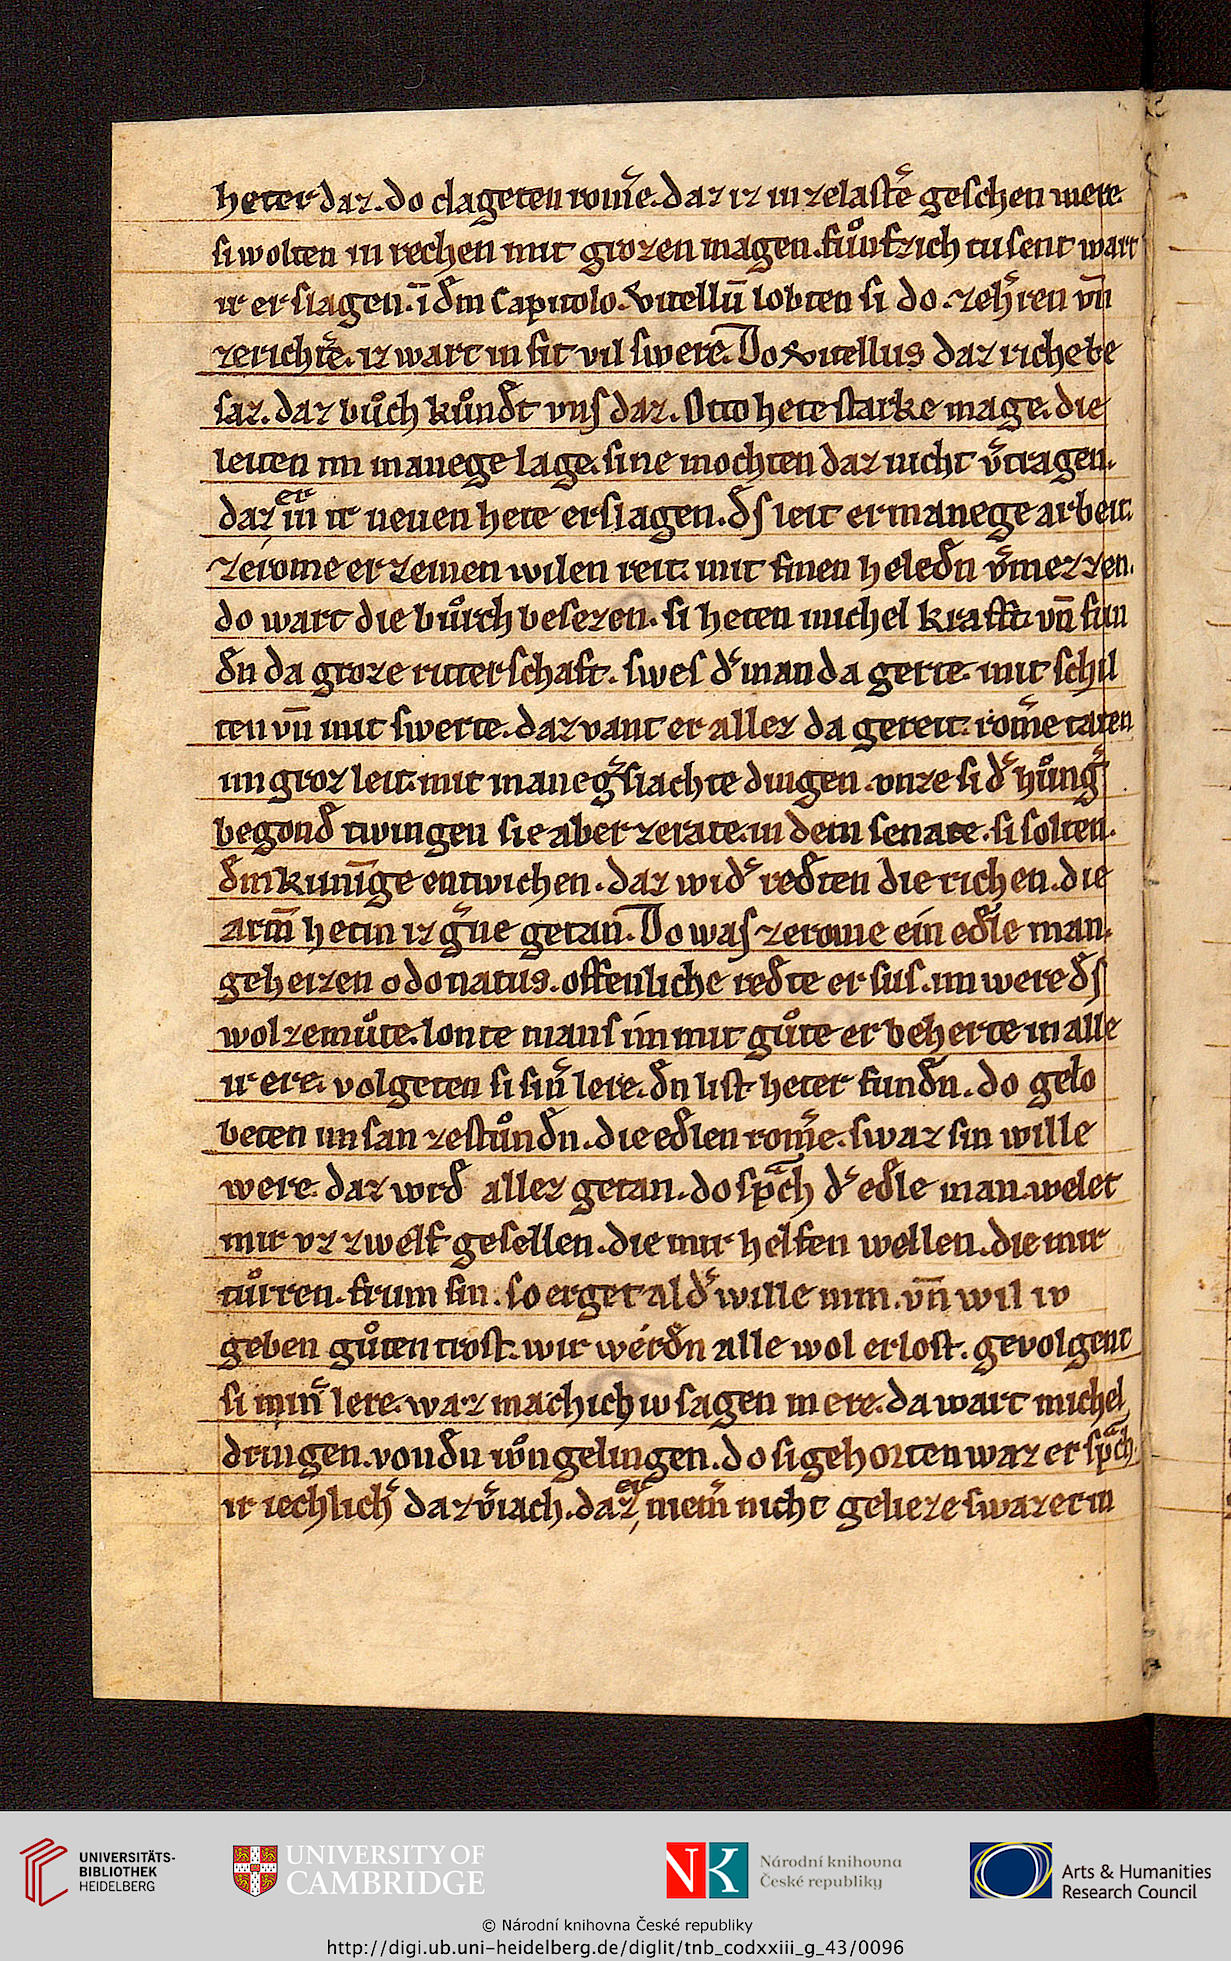 heter daz. do clageten rom̄e. daz iz in zelast̄e geschen were.
si wolten in rechen mit grozen magen. fuͦnfzich tusent wart
ir erslagen. ī dem Capitolo. Vitellū lobten si do. zeh̄ren vn̄
zericht̄e. iz wart in sit vil swere. Do vitellus daz riche be
saz. daz buͦch kuͦndet vns daz. Otto hete starke mage. die
leiten im manege lage. sine mochten daz nicht v̄tragen.
daz er in ir neuen hete erslagen. des leit er manege arbeit.
zerome er zeinen wilen reit. mit sinen heleden v̄mezzen.
do wart die buͦrch besezen. si heten michel kraft. vn̄ fun
den da groze ritterschaft. swes d̕ man da gerte. mit schil
ten vn̄ mit swerte. daz vant er allez da gereit. rom̄e taten
im groz leit. mit maneg̕ slachte dingen. vnze si d̕ huͦng̕
begond twingen sie aber zerate. in dem senate. si solten.
dem kunīge entwichen. daz wid̕ redten die richen. die
arm̄ hetin iz g̕ne getan. Do was zerome ein edele man.
geheizen odonatus. offenliche redte er sus. im were des
wol zemuͦte. lonte mans im mit guͦte er beherte in alle
ir ere. volgeten si sin̄ lere. den list heter funden. do gelo
beten im san zestuͦnden. die edlen rom̄e. swaz sin wille
were. daz wrd allez getan. do sp̄ch d̕ edle man. welet
mir vz zwelf gesellen. die mir helfen wellen. die mir
tuͦrren. frum sin. so erget al d̕ wille min. vn̄ wil iv
geben guͦten trost. wir werden alle wol erlost. gevolgent
si min̄ lere. waz mach ich iv sagen mere. da wart michel
dringen. von den iuͦngelingen. do si gehorten waz er sp̄ch.
ir iechlich̕ daz v̄iach. daz er niem̄ nicht relieze swaz er in
UNIVERSITÄTS-
BIBLIOTHEK
HEIDELBERG
UNIVERSITY OF
CAMBRIDGE
Národní knihovna
České republiky
Arts & Humanities
Research Council
© Národní knihovna České republiky
http://digi.ub.uni-heidelberg.de/diglit/tnb_codxxiii_g_43/0096